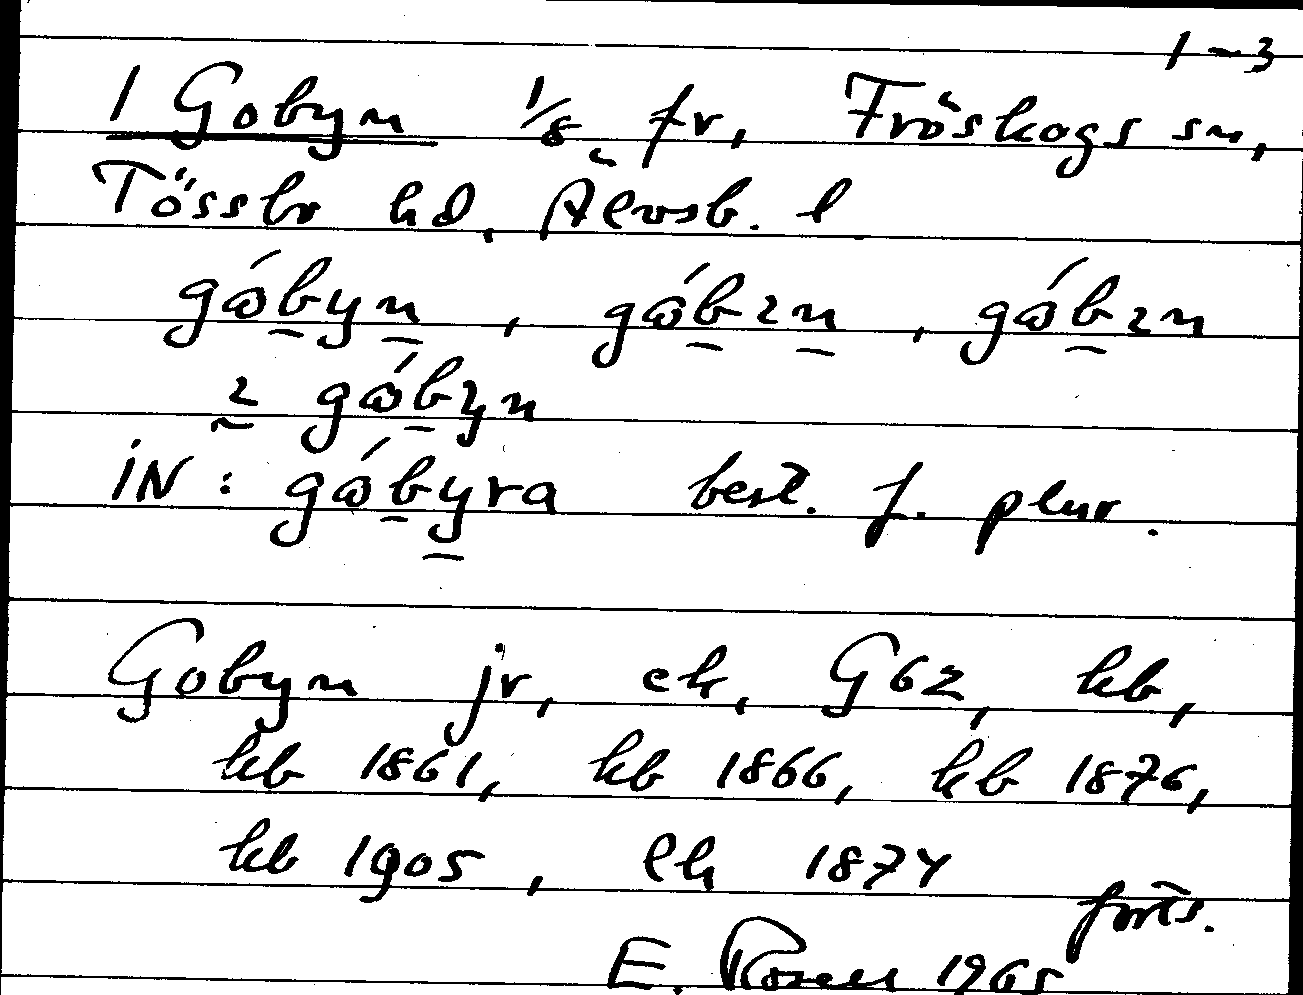 1-3
1 Gobyn 1/8 fr, Fröskogs sn,
Tössbo hd, Älvsb. l.
gǻbyn, gǻbɿn, gǻbɿn
2 gǻbyn
iN: gǻbyra best. f. plur.
Gobyn jr, ek, G62, kb,
kb 1861, kb 1866, kb 1876,
kb 1905, lh 1874
forts.
E. Rosell 1965